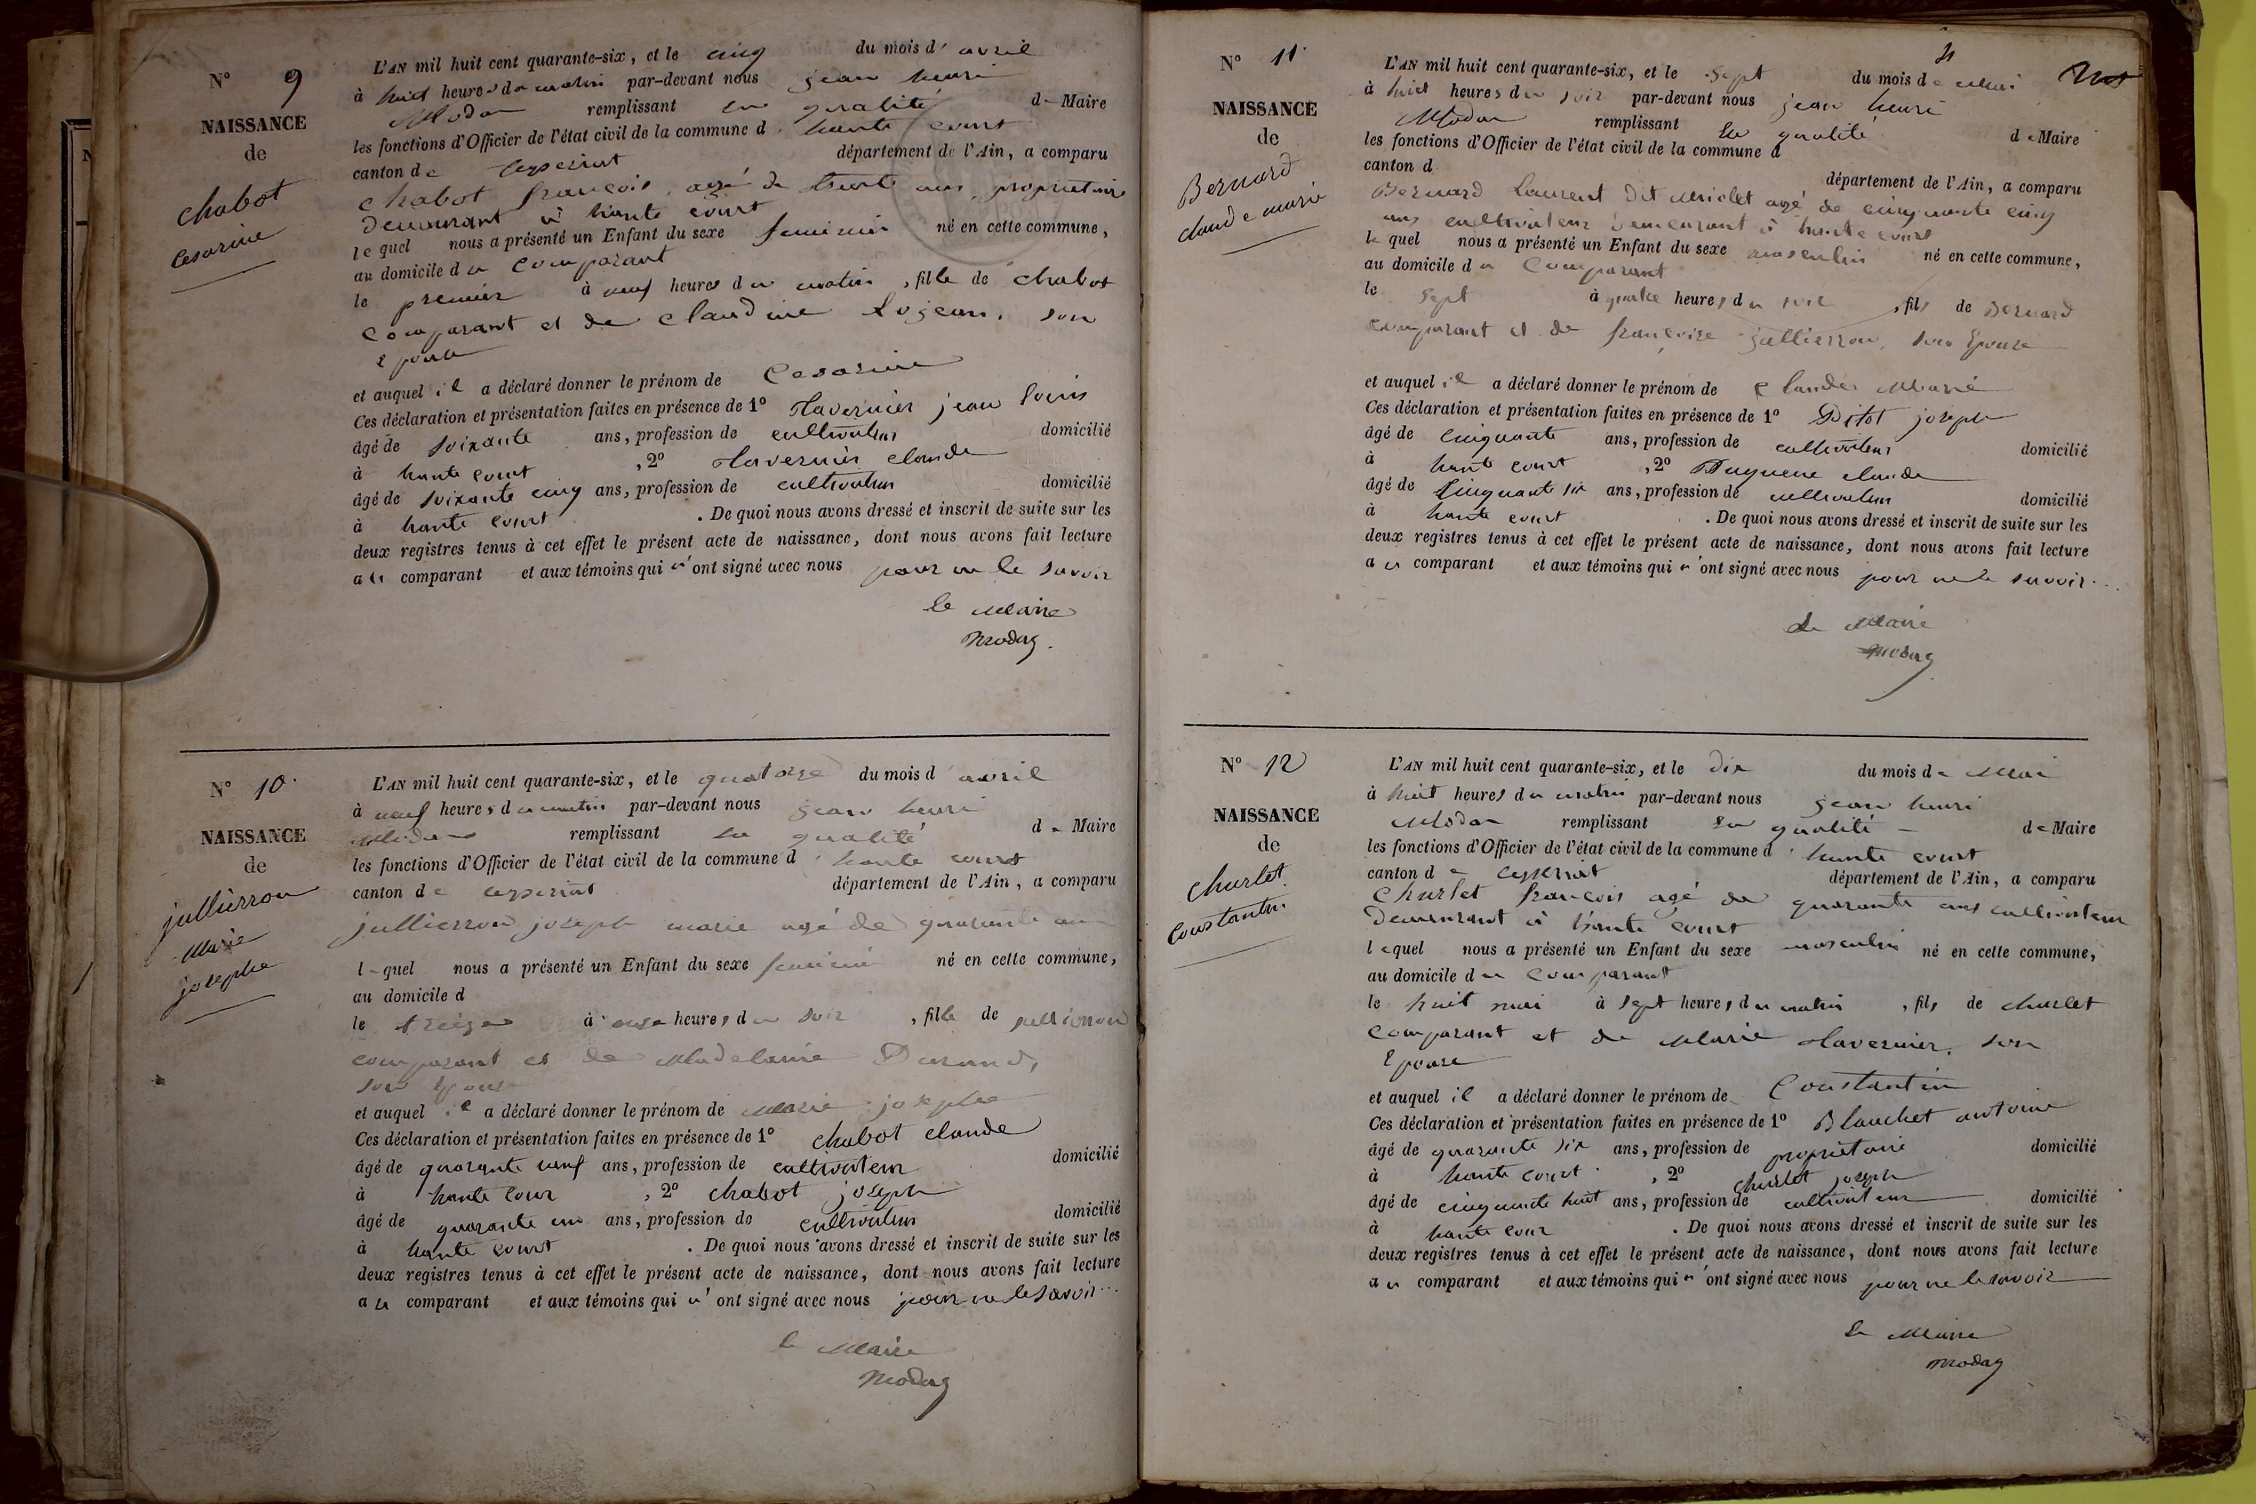 N° 9
NAISSANCE
de
Chabot
Cesarine
L'AN mil huit cent quarante-six, et le cinq du mois d'avril
à huit heures du matin par-devant nous jean henri
Modas remplissant en qualité de Maire
les fonctions d'Officier de l'état civil de la commune d'haute court
canton de Ceyseriat département de l'Ain, a comparu
Chabot françois, agé de trente ans, proprietaire
demeurant à haute court
lequel nous a présenté un Enfant du sexe feminin né en cette commune,
au domicile du comparant
le premier à neuf heures du matin, fille de Chabot
comparant et de Claudine Lojean, son
Epouse
et auquel il a déclaré donner le prénom de Cesarine
Ces déclaration et présentation faites en présence de 1° Tavernier jean louis
âgé de soixante ans, profession de cultivateur domicilié
à haute court, 2° Tavernier claude
âgé de soixante cinq ans, profession de cultivateur domicilié
à haute court. De quoi nous avons dressé et inscrit de suite sur les
deux registres tenus à cet effet le présent acte de naissance, dont nous avons fait lecture
au comparant et aux témoins qui n'ont signé avec nous pour ne le savoir
le Maire
Modas
N° 10
NAISSANCE
de
jullierron
Marie
josephe
L'AN mil huit cent quarante-six, et le quatorze du mois d'avril
à neuf heures du matin par-devant nous jean henri
Modas remplissant en qualité de Maire
les fonctions d'Officier de l'état civil de la commune d'haute court
canton de Ceyseriat département de l'Ain, a comparu
jullierron joseph marie agé de quarante ans
lequel nous a présenté un Enfant du sexe feminin né en cette commune,
au domicile d
le treize à onze heures du soir, fille de jullierron
comparant et de Madelaine Durand,
son Epouse
et auquel il a déclaré donner le prénom de Marie josephe
Ces déclaration et présentation faites en présence de 1° Chabot claude
âgé de quarante neuf ans, profession de cultivateur domicilié
à haute cour, 2° Chabot joseph
âgé de quarante un ans, profession de cultivateur domicilié
à haute court. De quoi nous avons dressé et inscrit de suite sur les
deux registres tenus à cet effet le présent acte de naissance, dont nous avons fait lecture
au comparant et aux témoins qui n'ont signé avec nous pour ne le savoir
le Maire
Modas
N° 11
NAISSANCE
de
Bernard
claude marie
L'AN mil huit cent quarante-six, et le sept du mois de Mai
à huit heures du soir par-devant nous jean henri
Modas remplissant en qualité de Maire
les fonctions d'Officier de l'état civil de la commune d
canton d département de l'Ain, a comparu
Bernard Laurent dit agé de cinquante cinq
ans cultivateur demeurant à haute court
lequel nous a présenté un Enfant du sexe masculin né en cette commune,
au domicile du Comparant
le sept à quatre heures du soir, fils de Bernard
comparant et de françoise jullierron, son Epouse
et auquel il a déclaré donner le prénom de Claude Marie
Ces déclaration et présentation faites en présence de 1° Pitot joseph
âgé de cinquante ans, profession de cultivateur domicilié
à haute court, 2° claude
âgé de Cinquante six ans, profession de cultivateur domicilié
à haute court. De quoi nous avons dressé et inscrit de suite sur les
deux registres tenus à cet effet le présent acte de naissance, dont nous avons fait lecture
au comparant et aux témoins qui n'ont signé avec nous pour ne le savoir
le Maire
Modas
N° 12
NAISSANCE
de
Churlet
Constantin
L'AN mil huit cent quarante-six, et le dix du mois de Mai
à huit heures du matin par-devant nous jean henri
Modas remplissant en qualité de Maire
les fonctions d'Officier de l'état civil de la commune d'haute court
canton de Ceyseriat département de l'Ain, a comparu
Churlet françois agé de quarante ans cultivateur
demeurant à haute court
lequel nous a présenté un Enfant du sexe masculin né en cette commune,
au domicile du comparant
le huit mai à sept heures du matin, fils de churlet
comparant et de Marie Tavernier, son
Epouse
et auquel il a déclaré donner le prénom de Constantin
Ces déclaration et présentation faites en présence de 1° Blanchet antoine
âgé de quarante six ans, profession de propriétaire domicilié
à haute court, 2° churlet joseph
âgé de cinquante huit ans, profession de cultivateur domicilié
à haute cour. De quoi nous avons dressé et inscrit de suite sur les
deux registres tenus à cet effet le présent acte de naissance, dont nous avons fait lecture
au comparant et aux témoins qui n'ont signé avec nous pour ne le savoir
le Maire
Modas